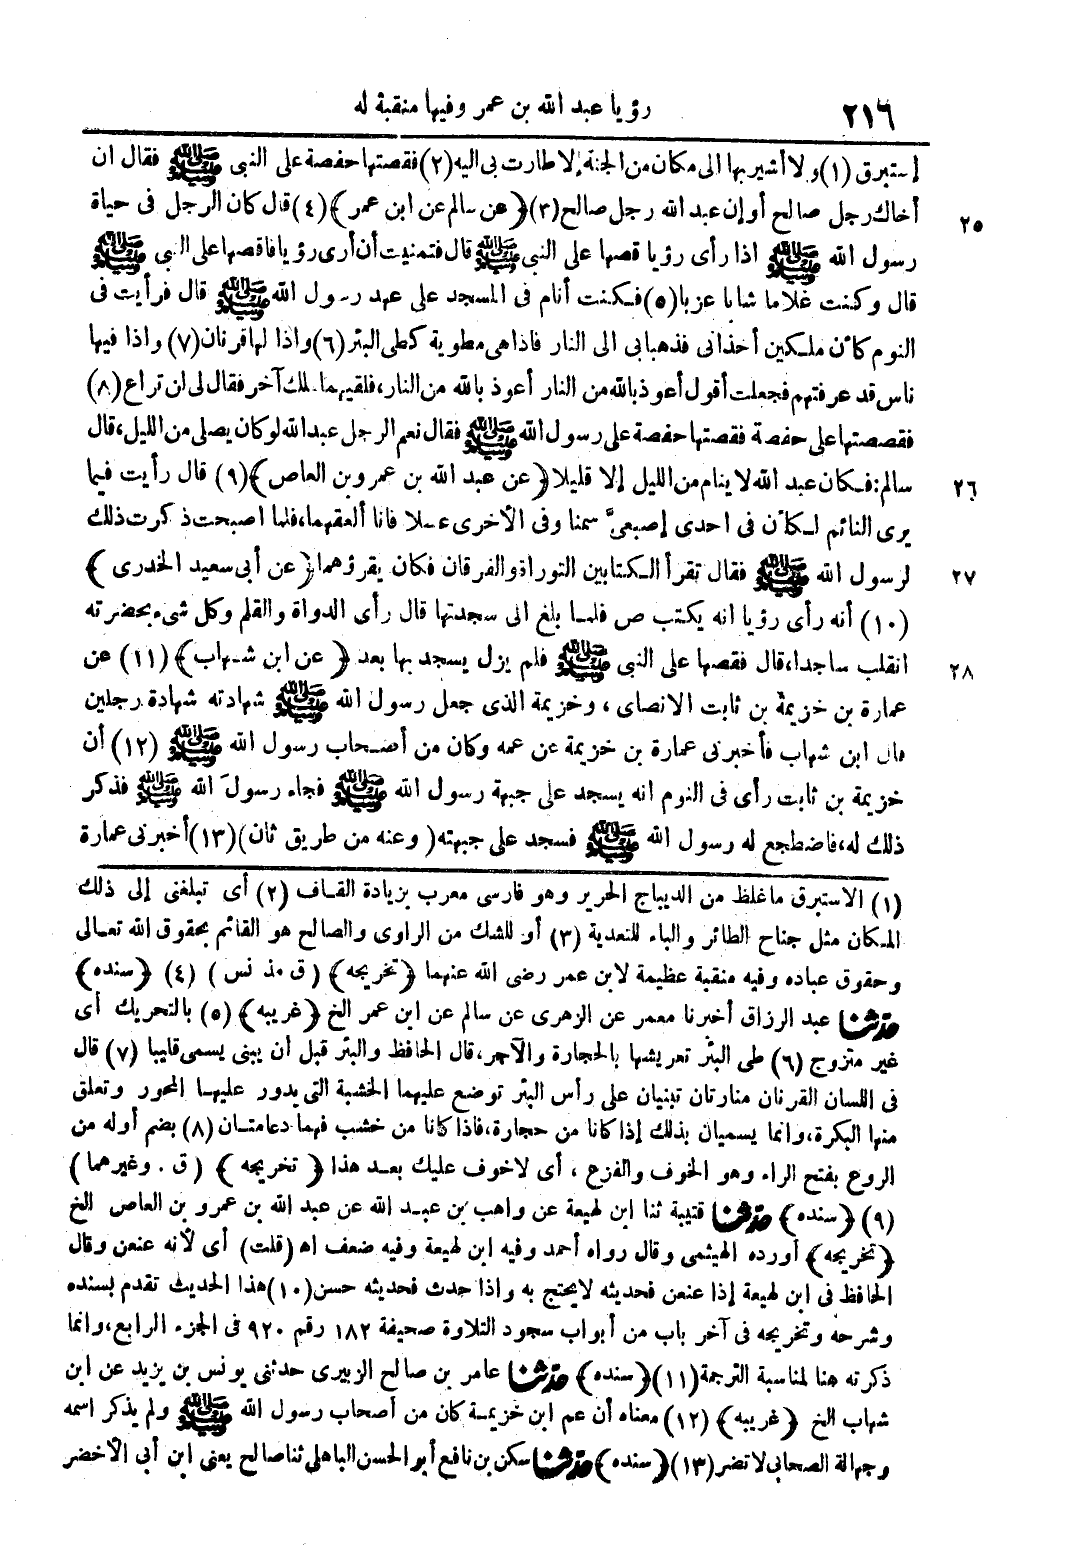 ٢١٦ رؤيا عبد الله بن عمر وفيها منقبة له
إستبرق (١) ولا أشير بها الى مكان من الجنة إلا طارت بى اليه (٢) فقصتها حفصة على النبى ﷺ فقال ان
٢٥ أخاك رجل صالح أو إن عبد الله رجل صالح (٣) ﴿عن سالم عن ابن عمر﴾ (٤) قال كان الرجل فى حياة
رسول الله ﷺ اذا رأى رؤيا قصها على النبى ﷺ قال فتمنيت أن أرى رؤيا فاقصها على النبى ﷺ
قال وكنت غلاما شابا عزبا (٥) فكنت أنام فى المسجد على عهد رسول الله ﷺ قال فرأيت فى
النوم كأن ملكين أخذانى فذهبا بى الى النار فاذا هى مطوية كطى البئر (٦) واذا لها قرنان (٧) واذا فيها
ناس قد عرفتهم فجعلت أقول أعوذ بالله من النار أعوذ بالله من النار، فلقيهما ملك آخر فقال لى لن تراع (٨)
فقصصتها على حفصة فقصتها حفصة على رسول الله ﷺ فقال نعم الرجل عبد الله لو كان يصلى من الليل، قال
٢٦ سالم: فكان عبد الله لا ينام من الليل إلا قليلا ﴿عن عبد الله بن عمرو بن العاص﴾ (٩) قال رأيت فيما
يرى النائم لكأن فى احدى إصبعىَّ سمنا وفى الأخرى عسلا فانا ألعقهما، فلما اصبحت ذكرت ذلك
٢٧ لرسول الله ﷺ فقال تقرأ الكتابين التوراة والفرقان فكان يقرؤهما ﴿عن أبى سعيد الخدرى﴾
(١٠) أنه رأى رؤيا انه يكتب ص فلما بلغ الى سجدتها قال رأى الدواة والقلم وكل شىء بحضرته
٢٨ انقلب ساجدا، قال فقصها على النبى ﷺ فلم يزل يسجد بها بعد ﴿عن ابن شهاب﴾ (١١) عن
عمارة بن خزيمة بن ثابت الانصاى، وخزيمة الذى جعل رسول الله ﷺ شهادته شهادة رجلين
قال ابن شهاب فأخبرنى عمارة بن خزيمة عن عمه وكان من أصحاب رسول الله ﷺ (١٢) أن
خزيمة بن ثابت رأى فى النوم انه يسجد على جبهة رسول الله ﷺ فجاء رسولَ الله ﷺ فذكر
ذلك له، فاضطجع له رسول الله ﷺ فسجد على جبهته (وعنه من طريق ثان) (١٣) أخبرنى عمارة
(١) الاستبرق ما غلظ من الديباج الحرير وهو فارسى معرب بزيادة القاف (٢) أى تبلغنى إلى ذلك
المكان مثل جناح الطائر والباء للتعدية (٣) أو للشك من الراوى والصالح هو القائم بحقوق الله تعالى
وحقوق عباده وفيه منقبة عظيمة لابن عمر رضى الله عنهما ﴿تخريجه﴾ (ق. مذ نس) (٤) ﴿سنده﴾
حدثنا عبد الرزاق أخبرنا معمر عن الزهرى عن سالم عن ابن عمر الخ ﴿غريبه﴾ (٥) بالتحريك أى
غير متزوج (٦) طى البئر تعريشها بالحجارة والآجر، قال الحافظ والبئر قبل أن يبنى يسمى قليبا (٧) قال
فى اللسان القرنان منارتان تبنيان على رأس البئر توضع عليهما الخشبة التى يدور عليها المحور وتعلق
منها البكرة، وانما يسميان بذلك إذا كانا من حجارة، فاذا كانا من خشب فهما دعامتان (٨) بضم أوله من
الروع بفتح الراء وهو الخوف والفزع، أى لا خوف عليك بعد هذا ﴿تخريجه﴾ (ق. وغيرهما)
(٩) ﴿سنده﴾ حدثنا قتيبة ثنا ابن لهيعة عن واهب بن عبد الله عن عبد الله بن عمرو بن العاص الخ
﴿تخريجه﴾ أورده الهيثمى وقال رواه أحمد وفيه ابن لهيعة وفيه ضعف اه (قلت) أى لأنه عنعن وقال
الحافظ فى ابن لهيعة إذا عنعن فحديثه لا يحتج به واذا حدث فحديثه حسن (١٠) هذا الحديث تقدم بسنده
وشرحه وتخريجه فى آخر باب من أبواب سجود التلاوة صحيفة ١٨٢ رقم ٩٢٠ فى الجزء الرابع، وانما
ذكرته هنا لمناسبة الترجمة (١١) ﴿سنده﴾ حدثنا عامر بن صالح الزبيرى حدثنى يونس بن يزيد عن ابن
شهاب الخ ﴿غريبه﴾ (١٢) معناه أن عم ابن خزيمة كان من أصحاب رسول الله ﷺ ولم يذكر اسمه
وجهالة الصحابى لا تضر (١٣) ﴿سنده﴾ حدثنا سكن بن نافع أبو الحسن الباهلى ثنا صالح يعنى ابن أبى الأخضر